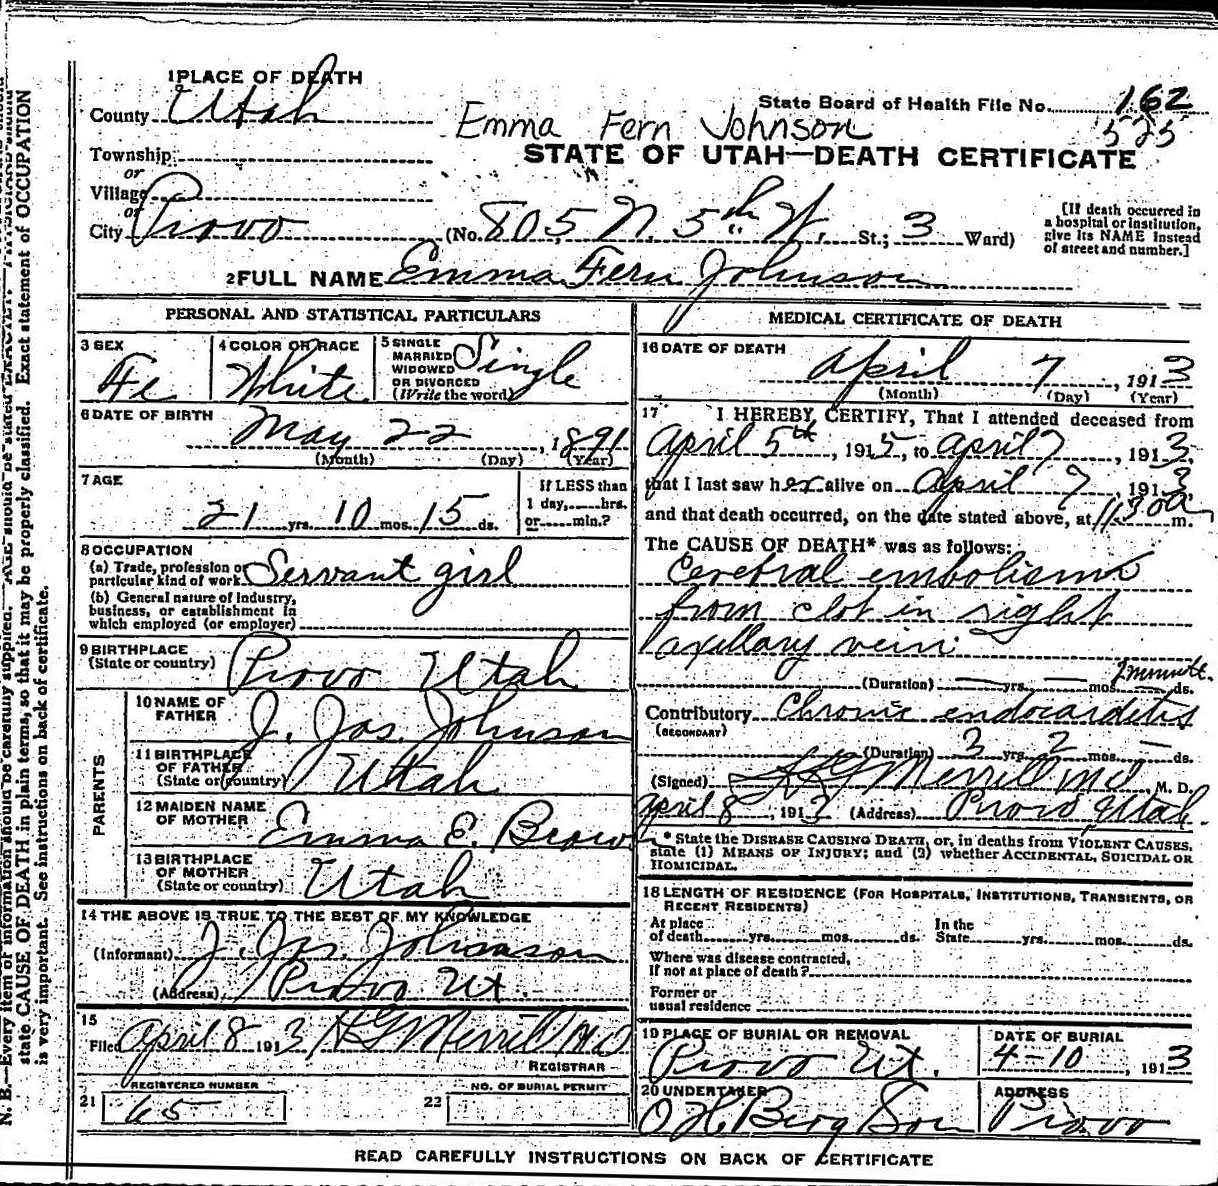 1 PLACE OF DEATH
County Utah
State Board of Health File No. 162
525
Emma Fern Johnson
STATE OF UTAH—DEATH CERTIFICATE
Township
or
Village
or
City Provo (No. 805 N. 5th W. St.; 3 Ward)
[If death occurred in
a hospital or institution,
give its NAME instead
of street and number.]
2 FULL NAME Emma Fern Johnson
PERSONAL AND STATISTICAL PARTICULARS
3 SEX
Fe
4 COLOR OR RACE
White
5 SINGLE
MARRIED
WIDOWED
OR DIVORCED
(Write the word)
Single
6 DATE OF BIRTH
May 22, 1891
(Month) (Day) (Year)
7 AGE
21 yrs. 10 mos. 15 ds.
If LESS than
1 day, hrs.
or min.?
8 OCCUPATION
(a) Trade, profession or
particular kind of work Servant girl
(b) General nature of industry,
business, or establishment in
which employed (or employer)
9 BIRTHPLACE
(State or country) Provo Utah
PARENTS
10 NAME OF
FATHER J. Jas. Johnson
11 BIRTHPLACE
OF FATHER
(State or country) Utah
12 MAIDEN NAME
OF MOTHER Emma E. Brown
13 BIRTHPLACE
OF MOTHER
(State or country) Utah
14 THE ABOVE IS TRUE TO THE BEST OF MY KNOWLEDGE
(Informant) J. Jas. Johnson
(Address) Provo Ut.
15
Filed April 8 1913 H G Merrill MD
REGISTRAR
REGISTERED NUMBER
21 65
NO. OF BURIAL PERMIT
22
MEDICAL CERTIFICATE OF DEATH
16 DATE OF DEATH
April 7, 1913
(Month) (Day) (Year)
17 I HEREBY CERTIFY, That I attended deceased from
April 5th, 1915, to April 7, 1913
that I last saw her alive on April 7, 1913
and that death occurred, on the date stated above, at 11:30 a m.
The CAUSE OF DEATH* was as follows:
Cerebral embolism
from clot in right
axillary vein
(Duration) yrs. mos. ds.
Contributory Chronic endocarditis
(SECONDARY)
(Duration) 3 yrs. 2 mos. — ds.
(Signed) H G Merrill MD, M. D.
April 8, 1913 (Address) Provo Utah.
* State the DISEASE CAUSING DEATH, or, in deaths from VIOLENT CAUSES,
state (1) MEANS OF INJURY; and (2) whether ACCIDENTAL, SUICIDAL OR
HOMICIDAL.
18 LENGTH OF RESIDENCE (FOR HOSPITALS, INSTITUTIONS, TRANSIENTS, OR
RECENT RESIDENTS)
At place
of death yrs. mos. ds.
In the
State yrs. mos. ds.
Where was disease contracted,
if not at place of death?
Former or
usual residence
19 PLACE OF BURIAL OR REMOVAL
Provo Ut.
DATE OF BURIAL
4-10, 1913
20 UNDERTAKER
O H. Berg Son
ADDRESS
Provo
READ CAREFULLY INSTRUCTIONS ON BACK OF CERTIFICATE
N. B.—Every item of information should be carefully supplied. AGE should be stated EXACTLY.
state CAUSE OF DEATH in plain terms, so that it may be properly classified. Exact statement of OCCUPATION
is very important. See instructions on back of certificate.